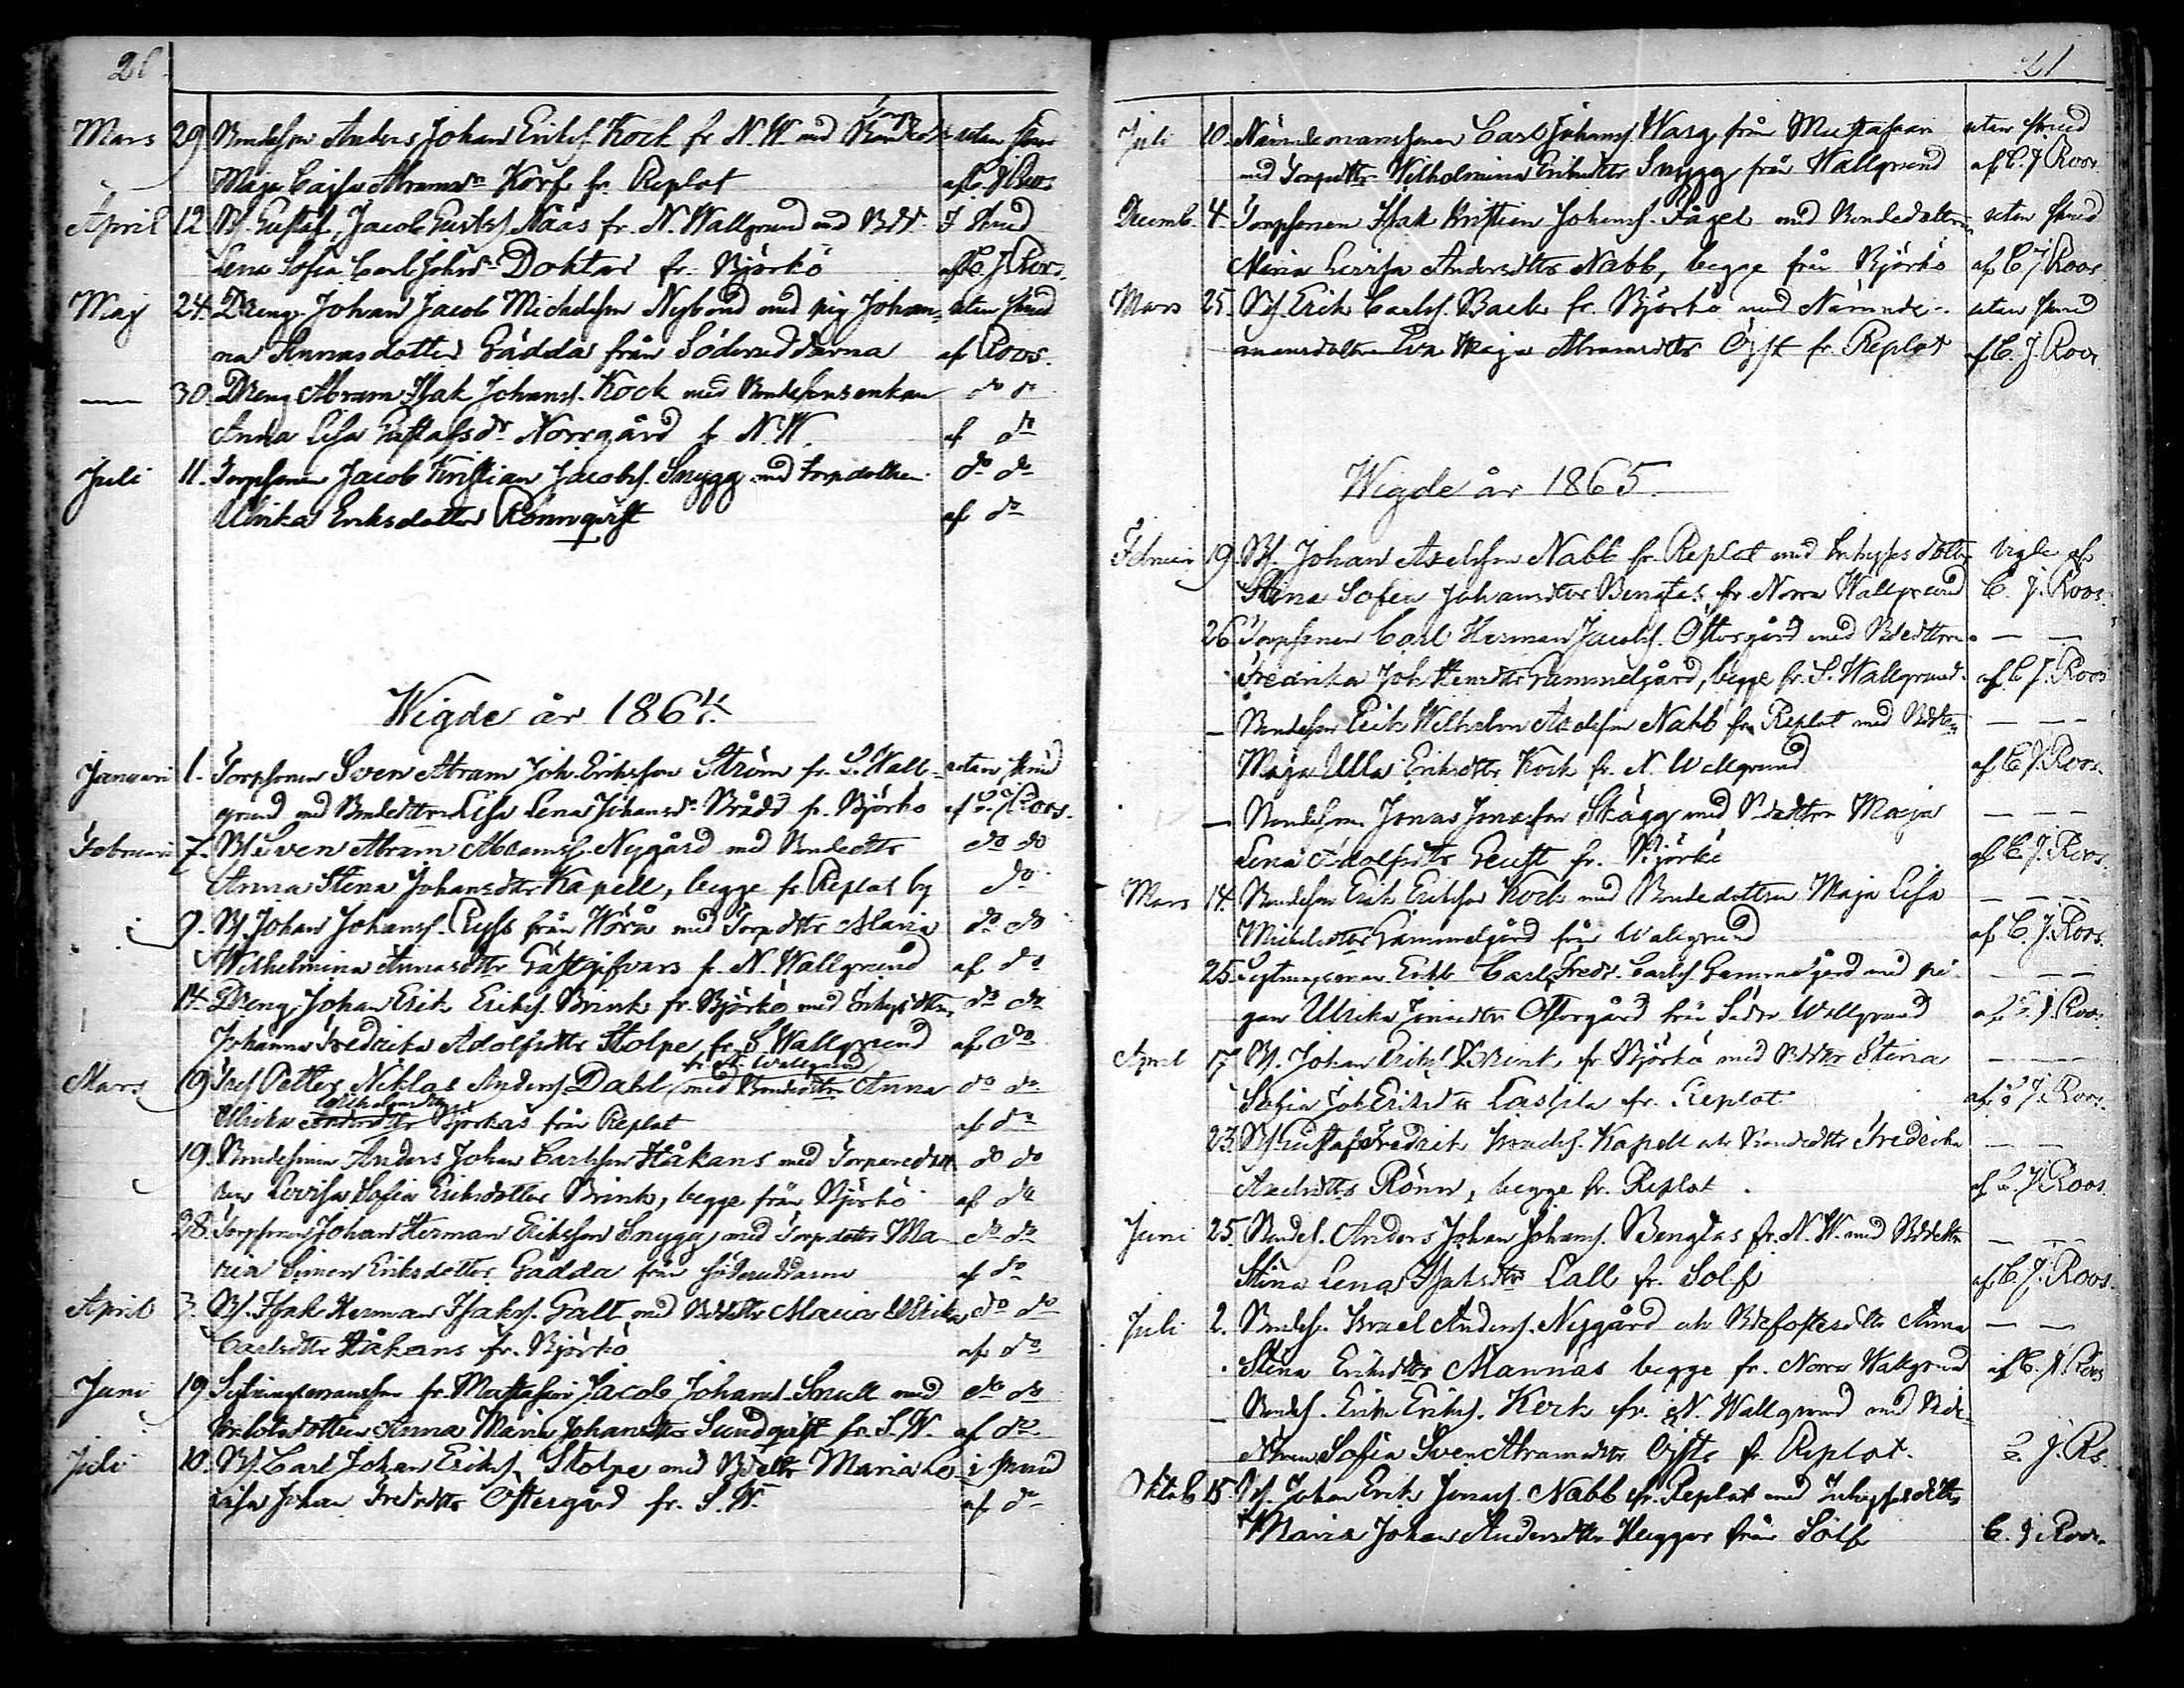 20.
Mars 29 Bondesson Anders Johan Eriks. Kock fr. N. W. med utan skrud
Maja Cajsa Abramsdr Korf fr. Replot af C. J. Roos
April 12 Bs. Gustaf Jacob Gustafs. Näås fr. N. Wallgrund med Bdr. I skrud
Lena Sofia Carl Johsdr Doktar fr. Björkö af C. J. Roos.
Maj 24. Dreng. Johan Jacob Michelsson Nybond med pig. Johan= utan skrud
na Annasdotter Gädda från Södersuddarna af Roos.
— 30. Dreng Abram Isak Johans. Kock med Bondesonsenkan do do
Anna Lisa Gustafsdr Norrgård fr N. W. af do
Juli 11. Torpsonen Jacob Kristian Jacobs. Snygg med torpdottren do do
Ulrika Eriksdotter Rönnqvist af do
Wigde år 1864.
Januari 1. Torpsonen Sven Abram Joh. Eriksson Ström fr. S. Wall- utan skrud
grund med Bondedottren Lisa Lena Johansdr Brådd fr. Björkö af C. J. Roos.
Februari 7. Bs Sven Abram Abrams. Nygård med Bondedttr do do
Anna Stina Johansdttr Kapell, begge fr. Replot by do
9. Bs. Johan Johans. Ryss från Wörå med Torpdttr Maria do do
Wilhelmina Annasdttr Gästgifvars fr. N. Wallgrund af do
14. Dreng. Johan Erik Eriks. Brink fr. Björkö med do do
Johanna Fredrika Adolfsdttr Stolpe fr. S. Wallgrund af do
fr. N. Wallgrund
Mars 19 Petter Niklas Anders. Dahl med Bondedttr Anna do do
Wilhelmsdttr
Ulrika Andersdttr Björkas från Replot af do
19. Bondesonen Anders Johan Carlsson Håkans med Torparedott do do
ren Lovisa Sofia Eriksdotter Brink, begge från Björkö af do
28. Torpsonen Johan Herman Eriksson Snygg med Torpdotter Ma- do do
ria Simon Eriksdotter Gädda från Södersuddarna af do
April 3. Bs. Isak Herman Isaks. Galt med Bdttr Maria Ulrika do do
Carlsdttr Håkans fr. Björkö af do
Juni 19 fr. Mustasaari Jacob Johans. Smult med do do
Anna Maria Johansdttr Sundqvist fr. S. W. af do
Juli 10. Bs. Carl Johan Eriks. Stolpe med Bdttr Maria Lo- i skrud
visa Johan Fredrdttr Östergård fr. S. W. af do
21
Juli 10. Nämndemanssonen Carl Johans. Warg från Mustasaari utan skrud
med Torpdttr Wilhelmina Eriksdttr Snygg från Wallgrund af C. J. Roos.
Decemb. 4. Torpsonen Isak Kristian Johans. Fågel med Bondedottren utan skrud
Maria Lovisa Andersdttr Nabb, begge från Björkö af C. J. Roos
Mars 25. Bs. Erik Carls. Back fr. Björkö med Nämnde- utan skrud
mansdottren Eva Maja Abramsdttr Öist fr. Replot af C. J. Roos
Wigde år 1865.
Februari 19. Bs. Johan Axelsson Nabb fr. Replot med Inhysesdotter Vigde af
Stina Sofia Johansdtter Bengtas, fr. Norra Wallgrund C. J. Roos.
26 Torpsonen Carl Herman Jacobs. Östergård med Bdedttren — —
Fredrika Joh. Gammelgård, begge fr. S. Wallgrund. af C. J. Roos
— Bondeson Erik Wilhelm Axelsson Nabb fr. Replot med — — —
Maja Ulla Eriksdttr Kock fr. N. Wallgrund af C. J. Roos.
— Bondeson. Jonas Jonasson Skägg med Maja — — —
Lena Adolfsdttr Geust fr. Björkö af C. J. Roos.
Mars 14. Bondeson Erik Eriksson Kock med Bondedottren Maja Lisa — — —
Michelsdtter Gammelgård från Wallgrund af C. J. Roos.
25. Carl Fredr. Carls. Gammelgård med pi- — — —
gan Ulrika Östergård från Södra Wallgrund af C. J. Roos
April 17 Bs. Johan Eriks. Brink fr. Björkö med Bdttr Stina — — —
Sofia Joh. Eriksdtr fr. Replot af C. J. Roos.
23. Bs Gustaf Fredrik Kapell och Bondedttr Fredrika — —
Axelsdttr Rönn, begge fr. Replot. af C. J. Roos.
Juni 25. Bondes. Anders Johan Johans. Bengtas fr. N. W. med Bdedttr — — —
Stina Lena Isaksdttr Call fr. Solf af C. J. Roos.
Juli 2. Bondes. Israel Anders. Nygård och Anna — —
Stina Eriksdttr Mannas begge fr. Norra Wallgrund af C. J. Roos
— Bondes. Erik Eriks. Kock fr. N. Wallgrund med Bde-
dttren Sofia Sven Abramsdttr Öist fr. Replot. C. J. Rs.
Oktob. 15. Bs. Johan Erik Jonas. Nabb fr. Replot med Inhysesdttr
Maria Johan Andersdttr Heggar från Solf C. J. Roos.